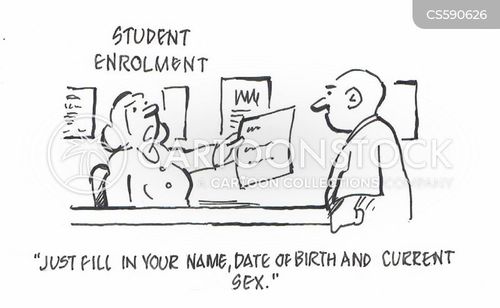 CS590626
STUDENT
ENROLMENT
CARTOONSTOCK
A CARTOON COLLECTIONS COMPANY
"JUST FILL IN YOUR NAME, DATE OF BIRTH AND CURRENT
SEX."